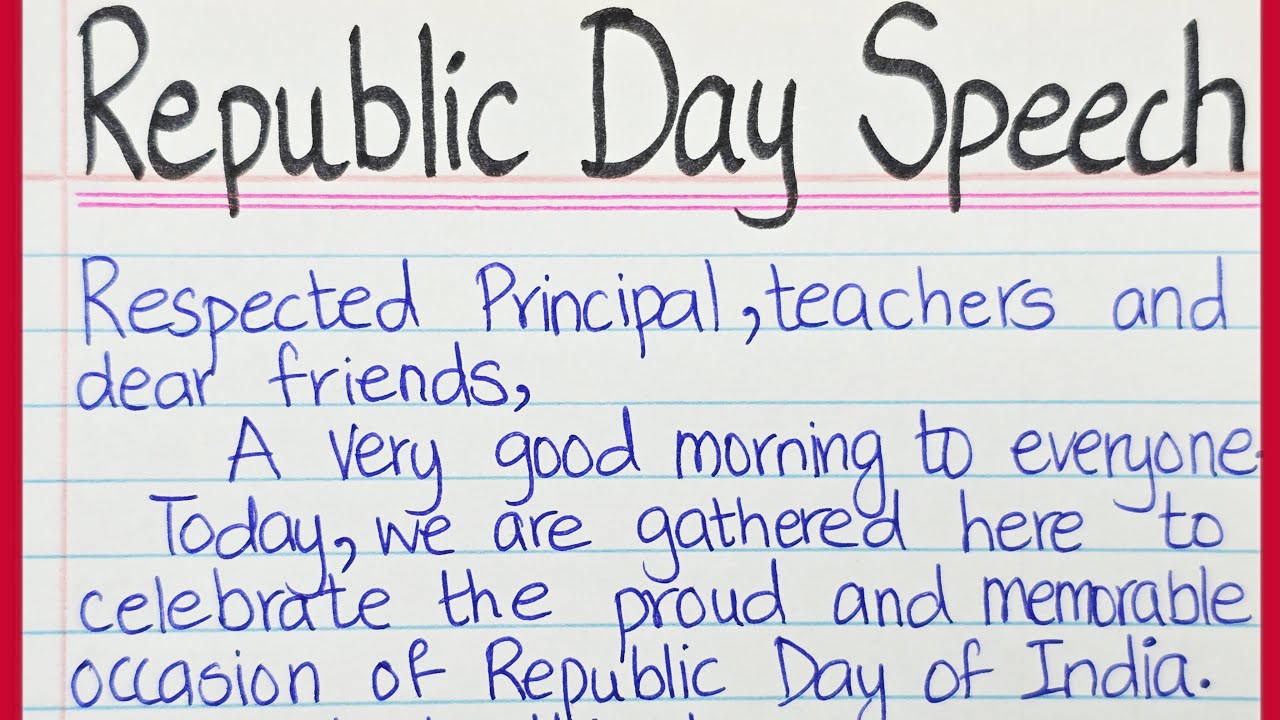 Republic Day Speech
Respected Principal, teachers and
dear friends,
A very good morning to everyone.
Today, we are gathered here to
celebrate the proud and memorable
occasion of Republic Day of India.